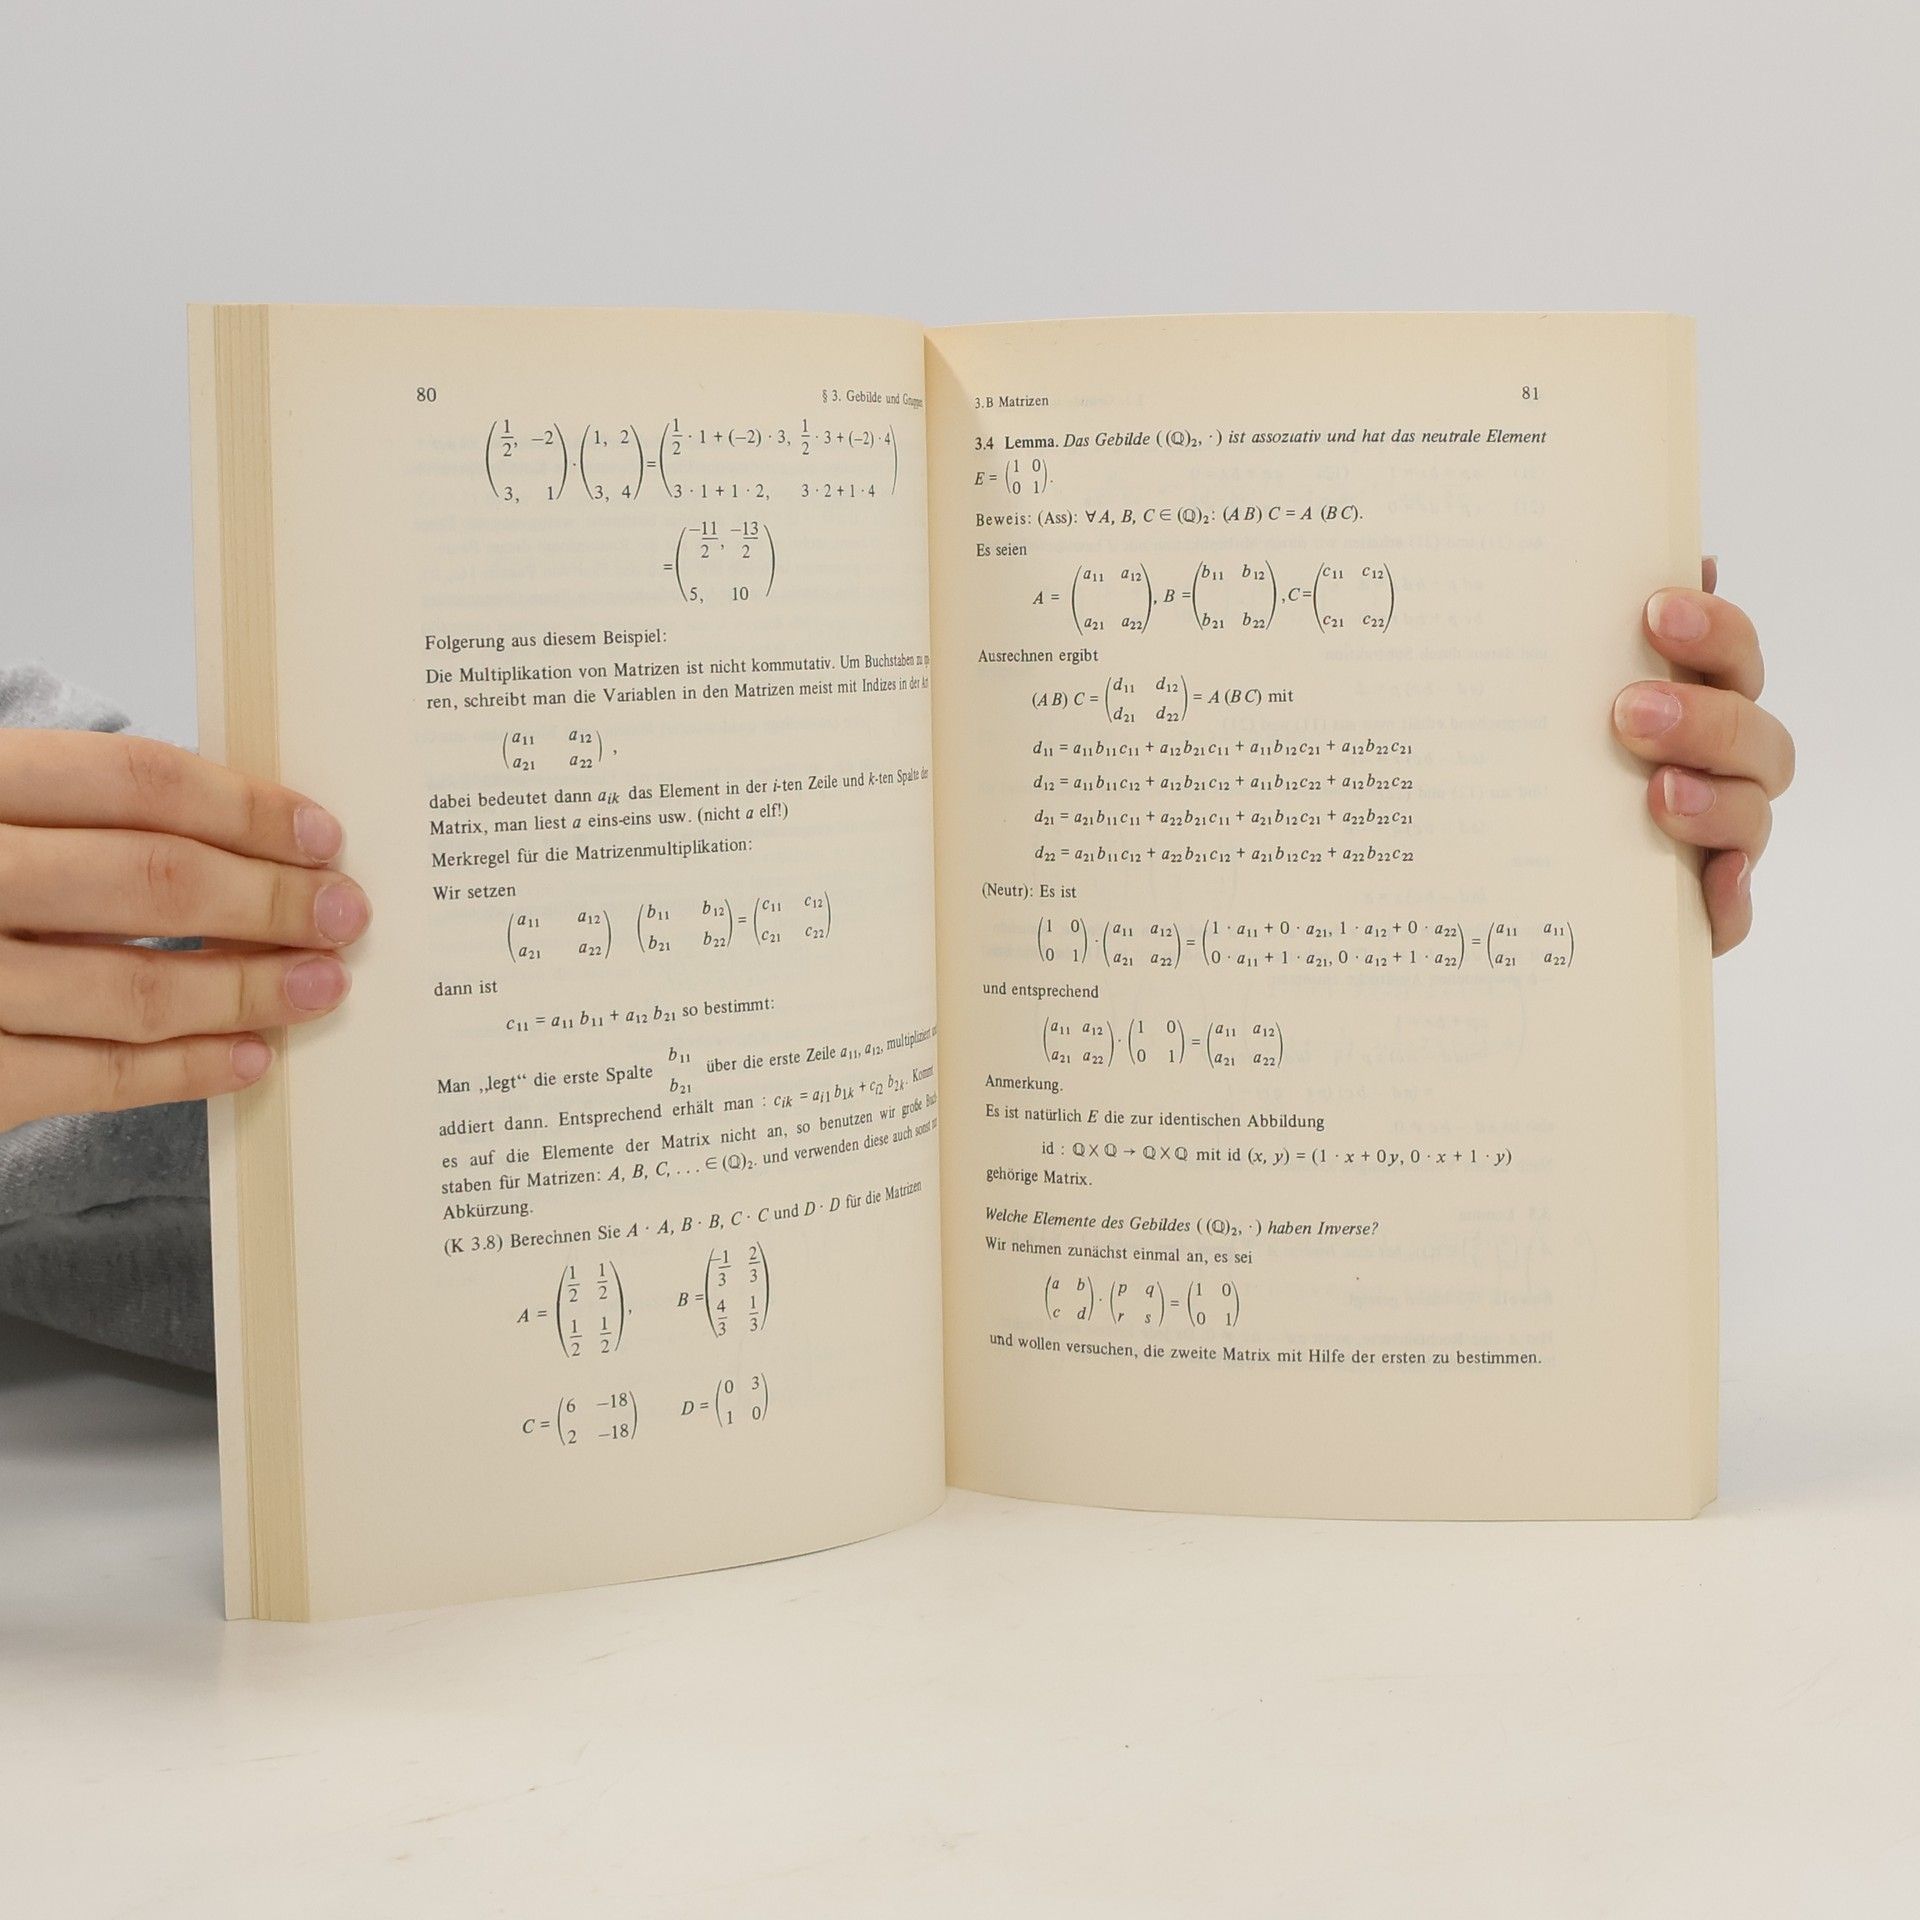 80
§ 3. Gebilde und Gruppen
(1/2, −2; 3, 1) · (1, 2; 3, 4) = (1/2 · 1 + (−2) · 3, 1/2 · 3 + (−2) · 4; 3 · 1 + 1 · 2, 3 · 2 + 1 · 4)
= (−11/2, −13/2; 5, 10)
Folgerung aus diesem Beispiel:
Die Multiplikation von Matrizen ist nicht kommutativ. Um Buchstaben zu
ren, schreibt man die Variablen in den Matrizen meist mit Indizes in der Art
(a₁₁ a₁₂; a₂₁ a₂₂) ,
dabei bedeutet dann aᵢₖ das Element in der i-ten Zeile und k-ten Spalte der
Matrix, man liest a eins-eins usw. (nicht a elf!)
Merkregel für die Matrizenmultiplikation:
Wir setzen
(a₁₁ a₁₂; a₂₁ a₂₂) (b₁₁ b₁₂; b₂₁ b₂₂) = (c₁₁ c₁₂; c₂₁ c₂₂)
dann ist
c₁₁ = a₁₁ b₁₁ + a₁₂ b₂₁ so bestimmt:
Man „legt“ die erste Spalte b₁₁ b₂₁ über die erste Zeile a₁₁, a₁₂, multipliziert
addiert dann. Entsprechend erhält man : cᵢₖ = aᵢ₁ b₁ₖ + cᵢ₂ b₂ₖ. Kommt
es auf die Elemente der Matrix nicht an, so benutzen wir große Buch
staben für Matrizen: A, B, C, . . . ∈ (ℚ)₂. und verwenden diese auch sonst zur
Abkürzung.
(K 3.8) Berechnen Sie A · A, B · B, C · C und D · D für die Matrizen
A = (1/2 1/2; 1/2 1/2), B = (−1/3 2/3; 4/3 1/3)
C = (6 −18; 2 −18) D = (0 3; 1 0)
3.B Matrizen
81
3.4 Lemma. Das Gebilde ((ℚ)₂, ·) ist assoziativ und hat das neutrale Element
E = (1 0; 0 1).
Beweis: (Ass): ∀ A, B, C ∈ (ℚ)₂: (A B) C = A (B C).
Es seien
A = (a₁₁ a₁₂; a₂₁ a₂₂), B = (b₁₁ b₁₂; b₂₁ b₂₂), C = (c₁₁ c₁₂; c₂₁ c₂₂)
Ausrechnen ergibt
(A B) C = (d₁₁ d₁₂; d₂₁ d₂₂) = A (B C) mit
d₁₁ = a₁₁b₁₁c₁₁ + a₁₂b₂₁c₁₁ + a₁₁b₁₂c₂₁ + a₁₂b₂₂c₂₁
d₁₂ = a₁₁b₁₁c₁₂ + a₁₂b₂₁c₁₂ + a₁₁b₁₂c₂₂ + a₁₂b₂₂c₂₂
d₂₁ = a₂₁b₁₁c₁₁ + a₂₂b₂₁c₁₁ + a₂₁b₁₂c₂₁ + a₂₂b₂₂c₂₁
d₂₂ = a₂₁b₁₁c₁₂ + a₂₂b₂₁c₁₂ + a₂₁b₁₂c₂₂ + a₂₂b₂₂c₂₂
(Neutr): Es ist
(1 0; 0 1) · (a₁₁ a₁₂; a₂₁ a₂₂) = (1 · a₁₁ + 0 · a₂₁, 1 · a₁₂ + 0 · a₂₂; 0 · a₁₁ + 1 · a₂₁, 0 · a₁₂ + 1 · a₂₂) = (a₁₁ a₁₁; a₂₁ a₂₂)
und entsprechend
(a₁₁ a₁₂; a₂₁ a₂₂) · (1 0; 0 1) = (a₁₁ a₁₂; a₂₁ a₂₂)
Anmerkung.
Es ist natürlich E die zur identischen Abbildung
id : ℚ × ℚ → ℚ × ℚ mit id (x, y) = (1 · x + 0y, 0 · x + 1 · y)
gehörige Matrix.
Welche Elemente des Gebildes ((ℚ)₂, ·) haben Inverse?
Wir nehmen zunächst einmal an, es sei
(a b; c d) · (p q; r s) = (1 0; 0 1)
und wollen versuchen, die zweite Matrix mit Hilfe der ersten zu bestimmen.